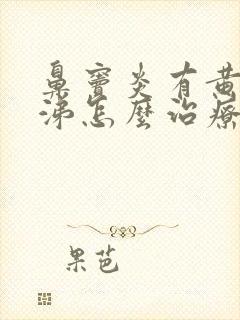 鼻窦炎有黄
涕怎麼治療
果芭